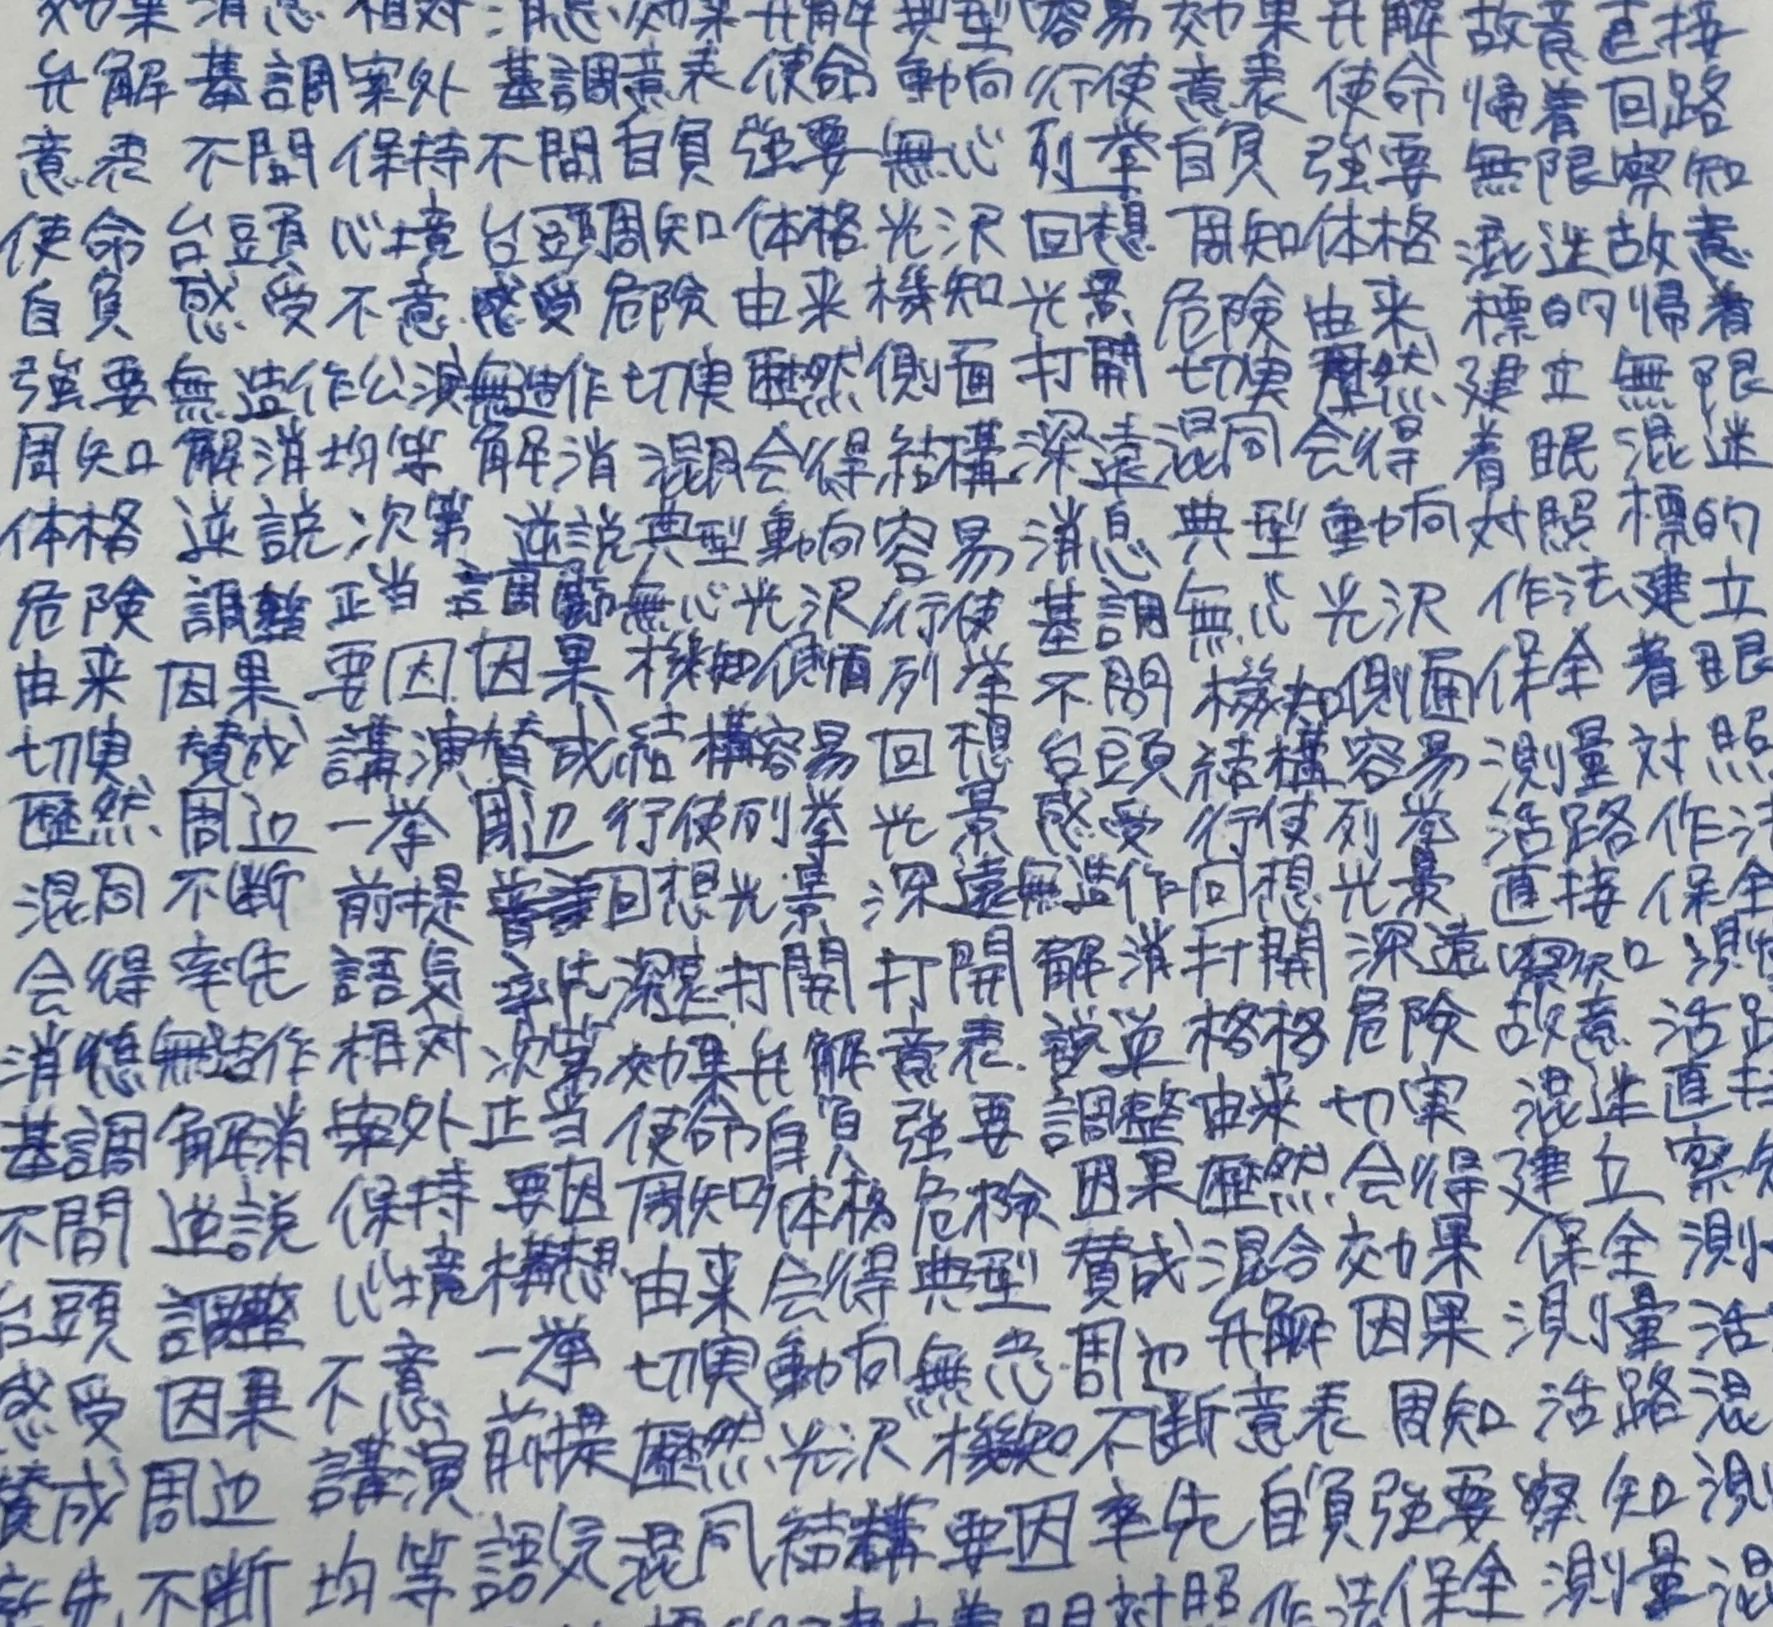 効果 消息 相対 消息 効果 弁解 典型 容易 効果 弁解 故意 直接
弁解 基調 案外 基調 意表 使命 動向 行使 意表 使命 帰着 回路
意表 不問 保持 不問 自負 強要 無心 列挙 自負 強要 無限 察知
使命 台頭 心境 台頭 周知 体格 光沢 回想 周知 体格 混迷 故意
自負 感受 不意 感受 危険 由来 機知 光景 危険 由来 標的 帰着
強要 無造作 公演 無造作 切実 歴然 側面 打開 切実 歴然 建立 無限
周知 解消 均等 解消 混同 会得 結構 深遠 混同 会得 着眼 混迷
体格 逆説 次第 逆説 典型 動向 容易 消息 典型 動向 対照 標的
危険 調整 正当 調整 無心 光沢 行使 基調 無心 光沢 作法 建立
由来 因果 要因 因果 機知 側面 列挙 不問 機知 側面 保全 着眼
切実 賛成 講演 賛成 結構 容易 回想 台頭 結構 容易 測量 対照
歴然 周辺 一挙 周辺 行使 列挙 光景 感受 行使 列挙 活路 作法
混同 不断 前提 回想 光景 深遠 無造作 回想 光景 直接 保全
会得 率先 語気 率先 深遠 打開 打開 解消 打開 深遠 察知 測
消息 無造作 相対 次第 効果 弁解 意表 説逆 格格 危険 故意 活路
基調 解消 案外 正当 使命 自負 強要 調整 由来 切実 混迷 直接
不問 逆説 保持 要因 周知 体格 危険 因果 歴然 会得 建立 察知
台頭 調整 心境 構想 由来 会得 典型 賛成 混合 効果 保全 測
感受 因果 不意 一挙 切実 動向 無心 周辺 弁解 因果 測量 活
賛成 周辺 講演 前提 歴然 光沢 機知 不断 意表 周知 活路 混
率先 不断 均等 語気 混同 結構 要因 率先 自負 強要 察知 測
対照 作法 保全 測量 混